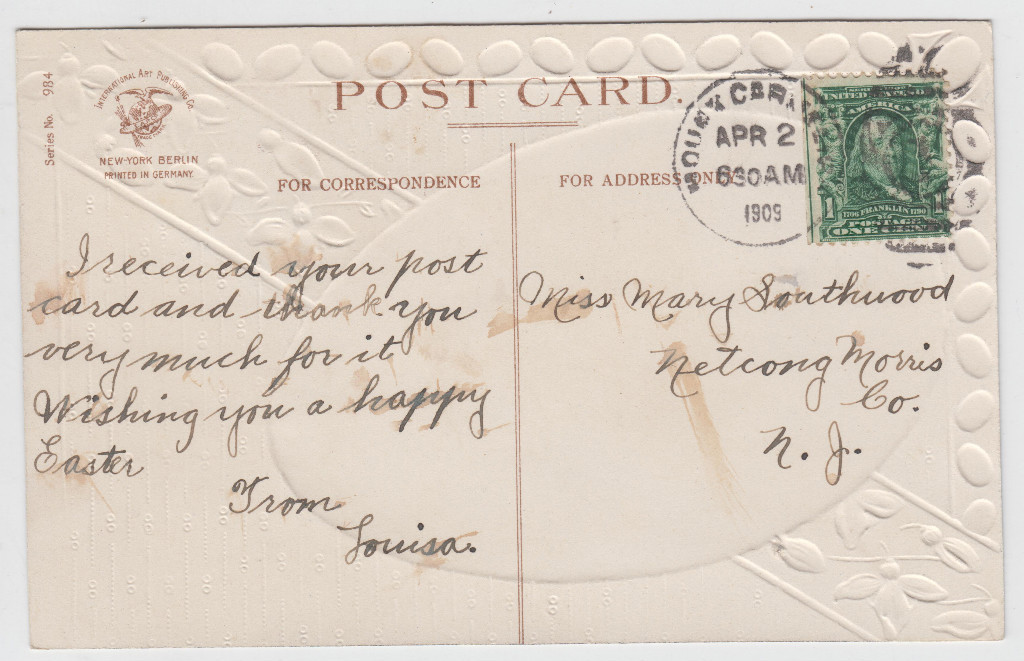 Series No. 984
INTERNATIONAL ART PUBLISHING CO.
NEW-YORK BERLIN
PRINTED IN GERMANY.
POST CARD.
FOR CORRESPONDENCE
FOR ADDRESS ONLY
APR 2
630AM
1909
UNITED STATES
AMERICA
1
1706 FRANKLIN 1790
POSTAGE
ONE CENT
I received your post
card and thank you
very much for it
Wishing you a happy
Easter
From
Louisa.
Miss Mary Southwood
Netcong Morris
Co.
N. J.